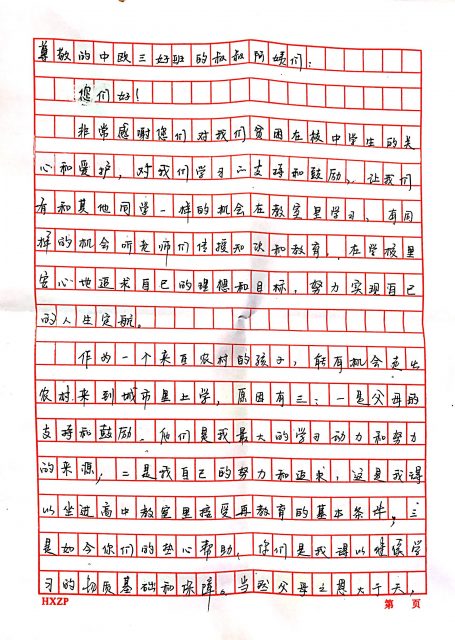 尊敬的中欧三好班的叔叔阿姨们:
您们好!
非常感谢您们对我们贫困在校中学生的关
心和爱护,对我们学习的支持和鼓励,让我们
有和其他同学一样的机会在教室里学习,有同
样的机会听老师们传授知识和教育,在学校里
安心地追求自己的理想和目标,努力实现自己
的人生定航。
作为一个来自农村的孩子,能有机会走出
农村来到城市里上学,原因有三:一是父母的
支持和鼓励,他们是我最大的学习动力和努力
的来源;二是我自己的努力和追求,这是我得
以坐进高中教室里接受再教育的基本条件;三
是如今你们的热心帮助,你们是我得以继续学
习的物质基础和保障。当然父母之恩大于天,
HXZP 第 页